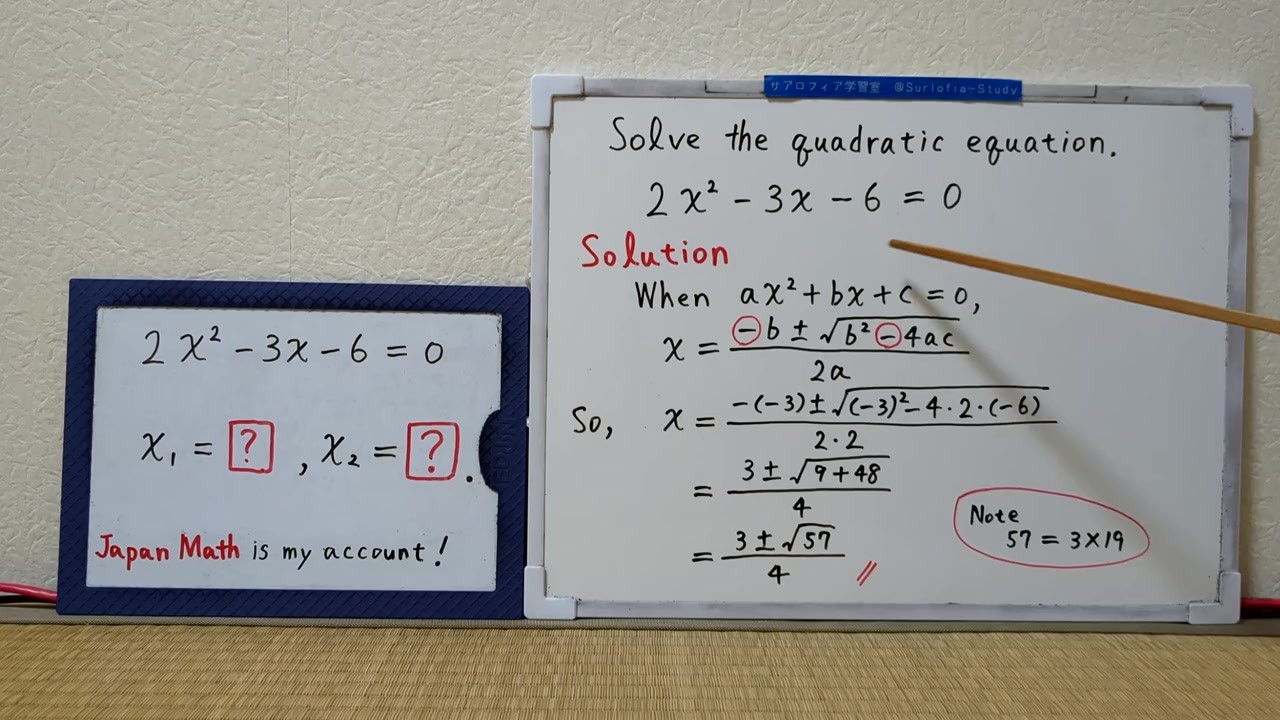 2x² - 3x - 6 = 0
x₁ = ? , x₂ = ? .
Japan Math is my account!
サアロフィア学習室 @Surlofia-Study
Solve the quadratic equation.
2x² - 3x - 6 = 0
Solution
When ax² + bx + c = 0,
x = (-b ± √(b² - 4ac)) / 2a
So, x = (-(-3) ± √((-3)² - 4・2・(-6))) / 2・2
= (3 ± √(9 + 48)) / 4
= (3 ± √57) / 4 //
Note
57 = 3×19